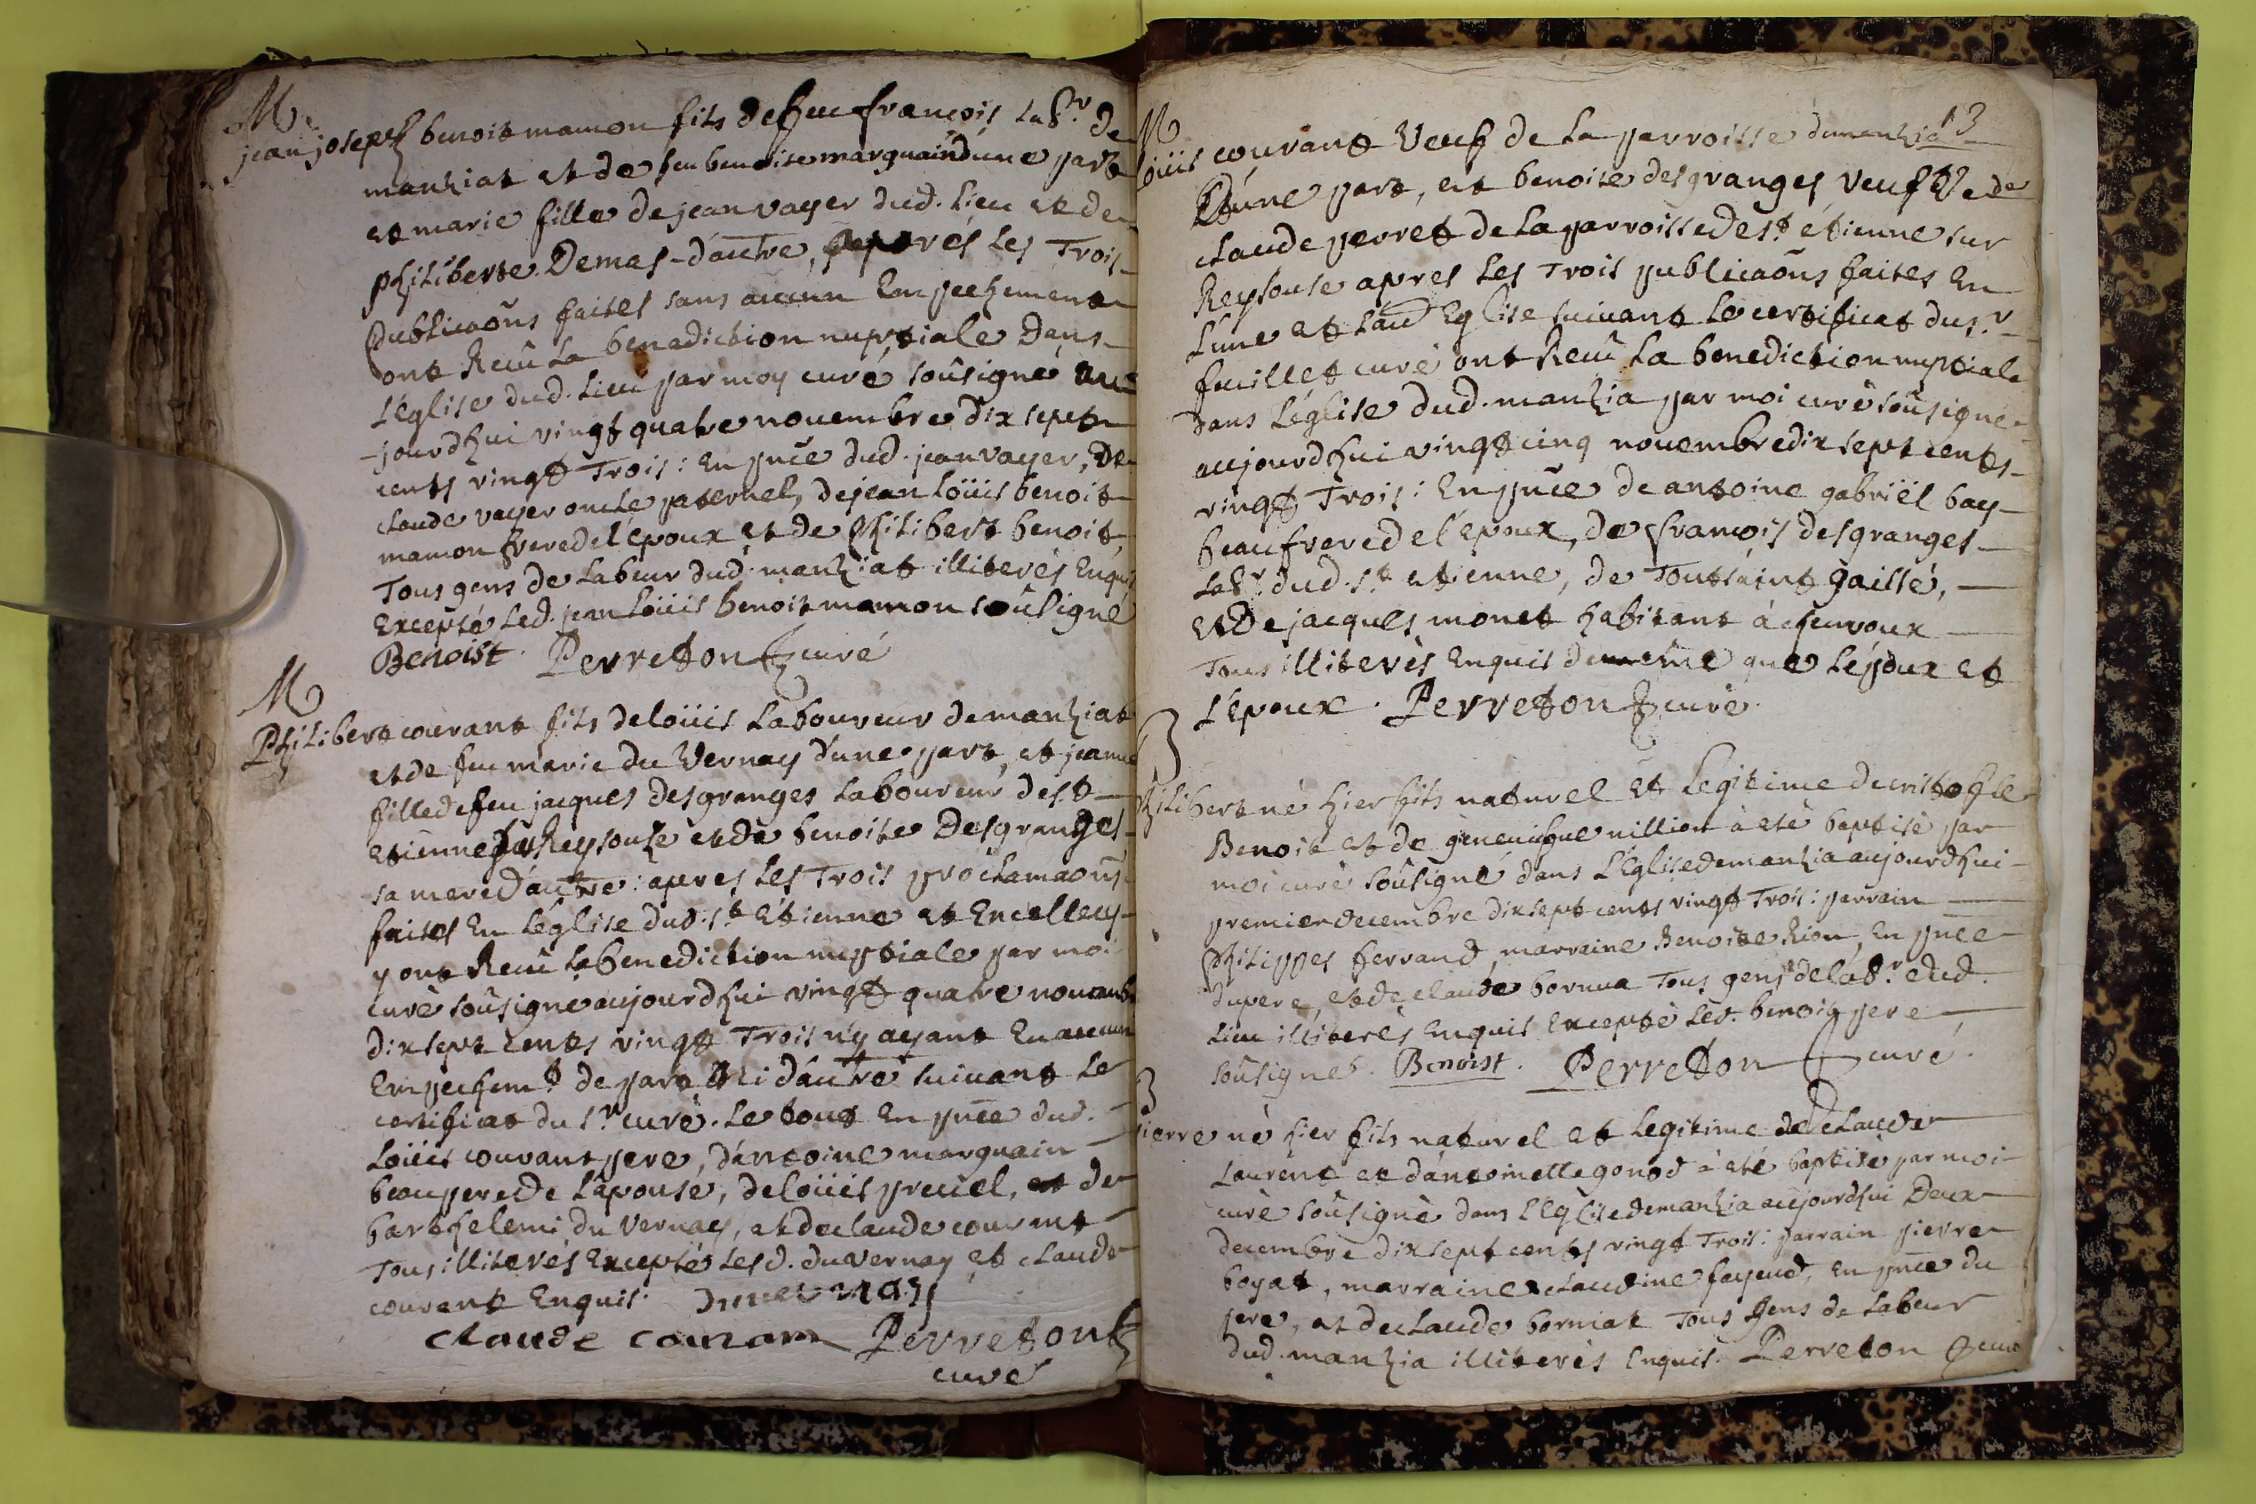 M
jean joseph benoit mamon fils de feu françois lab.r de
manziat et de feu benoite marguain d'une part
et marie fille de jean vayer dud. lieu et de
philiberte Demas d'autre, apres les Trois
publicaõns faites sans aucun Empechement
ont Reçû la benediction nuptiale dans
l'église dud. lieu par moy curé soûsigné au
jourdhui vingt quatre novembre dix sept
cents vingt Trois : En pn̄ce dud. jean vayer, de
claude vayer oncle paternel, de jean loüis benoit
mamon frere de l'epoux et de philibert benoit,
Tous gens de labeur dud. manziat illiterés Enquis
Excepté led. jean loüis benoit mamon soûsigné
Benoist. Perreton curé
M
Philibert courant fils de loüis laboureur de manziat
et de feu marie du Vernay d'une part, et jeanne
fille de feu jacques desgranges laboureur de s.t
etienne sur Reysouze et de benoite Desgranges
sa mere d'autre : apres les Trois proclamaõns
faites En l'église dud. s.t Etienne et En celle cy
y ont Reçû la benediction nuptiale par moi
curé soûsigné aujourdhui vingt quatre novemb
dix sept cents vingt Trois n'y ayant Eu aucun
Empechem.t de part ni d'autre suivant le
certificat du s.r curé. Le tout En pn̄ce dud.
Loüis courant pere, d'antoine marguain
beaupere de l'epouse, de loüis preuel, et de
barthelemi du Vernay, et de claude courant
Tous illiterés Excepté les d. du vernay et claude
courant Enquis.
claude couran Perreton
curé
13
M
loüis courant Veuf de la parroisse de manzia
D'une part, et benoite desgranges veufve de
claude perret de la parroisse de s.t étienne sur
Reysouse apres les Trois publicaõns faites En
l'une et l'au Eglise suivant le certificat du s.r
fuillet curé ont Reçû la benediction nuptiale
dans l'église dud. manzia par moi curé soûsigné
aujourdhui vingt cinq novembre dix sept cents
vingt Trois : En pn̄ce de antoine gabriël bay
beaufrere de l'epoux, de françois desgranges
lab.r dud. s.t etienne, de Toussaint gaillé,
et De jacques monet habitant à chevroux
Tous illiterés Enquis de même que l'époux et
l'Epouse. Perreton curé.
B
philibert né hier fils naturel et legitime de cristofle
Benoit et de genevieue nillion à eté baptisé par
moi curé soûsigné dans l'Eglise de manzia aujourdhui
premier decembre dix sept cents vingt Trois : parrain
philippes ferrand, marraine Benoite Rion, En pn̄ce
du pere, et de claude bornua Tous gens de lab.r dud.
Lieu illiterés Enquis Excepté led. benoit pere
soûsigné. Benoist. Perreton curé.
B
pierre né hier fils naturel et legitime de claude
Laurent et d'antoinette gonod à eté baptisé par moi
curé soûsigné dans l'Eglise de manzia aujourdhui Deux
decembre dix sept cents vingt Trois : parrain pierre
boyat, marraine claudine fayend, En pn̄ce du
pere, et de claude borniat Tous gens de labeur
dud. manzia illiterés Enquis. Perreton curé